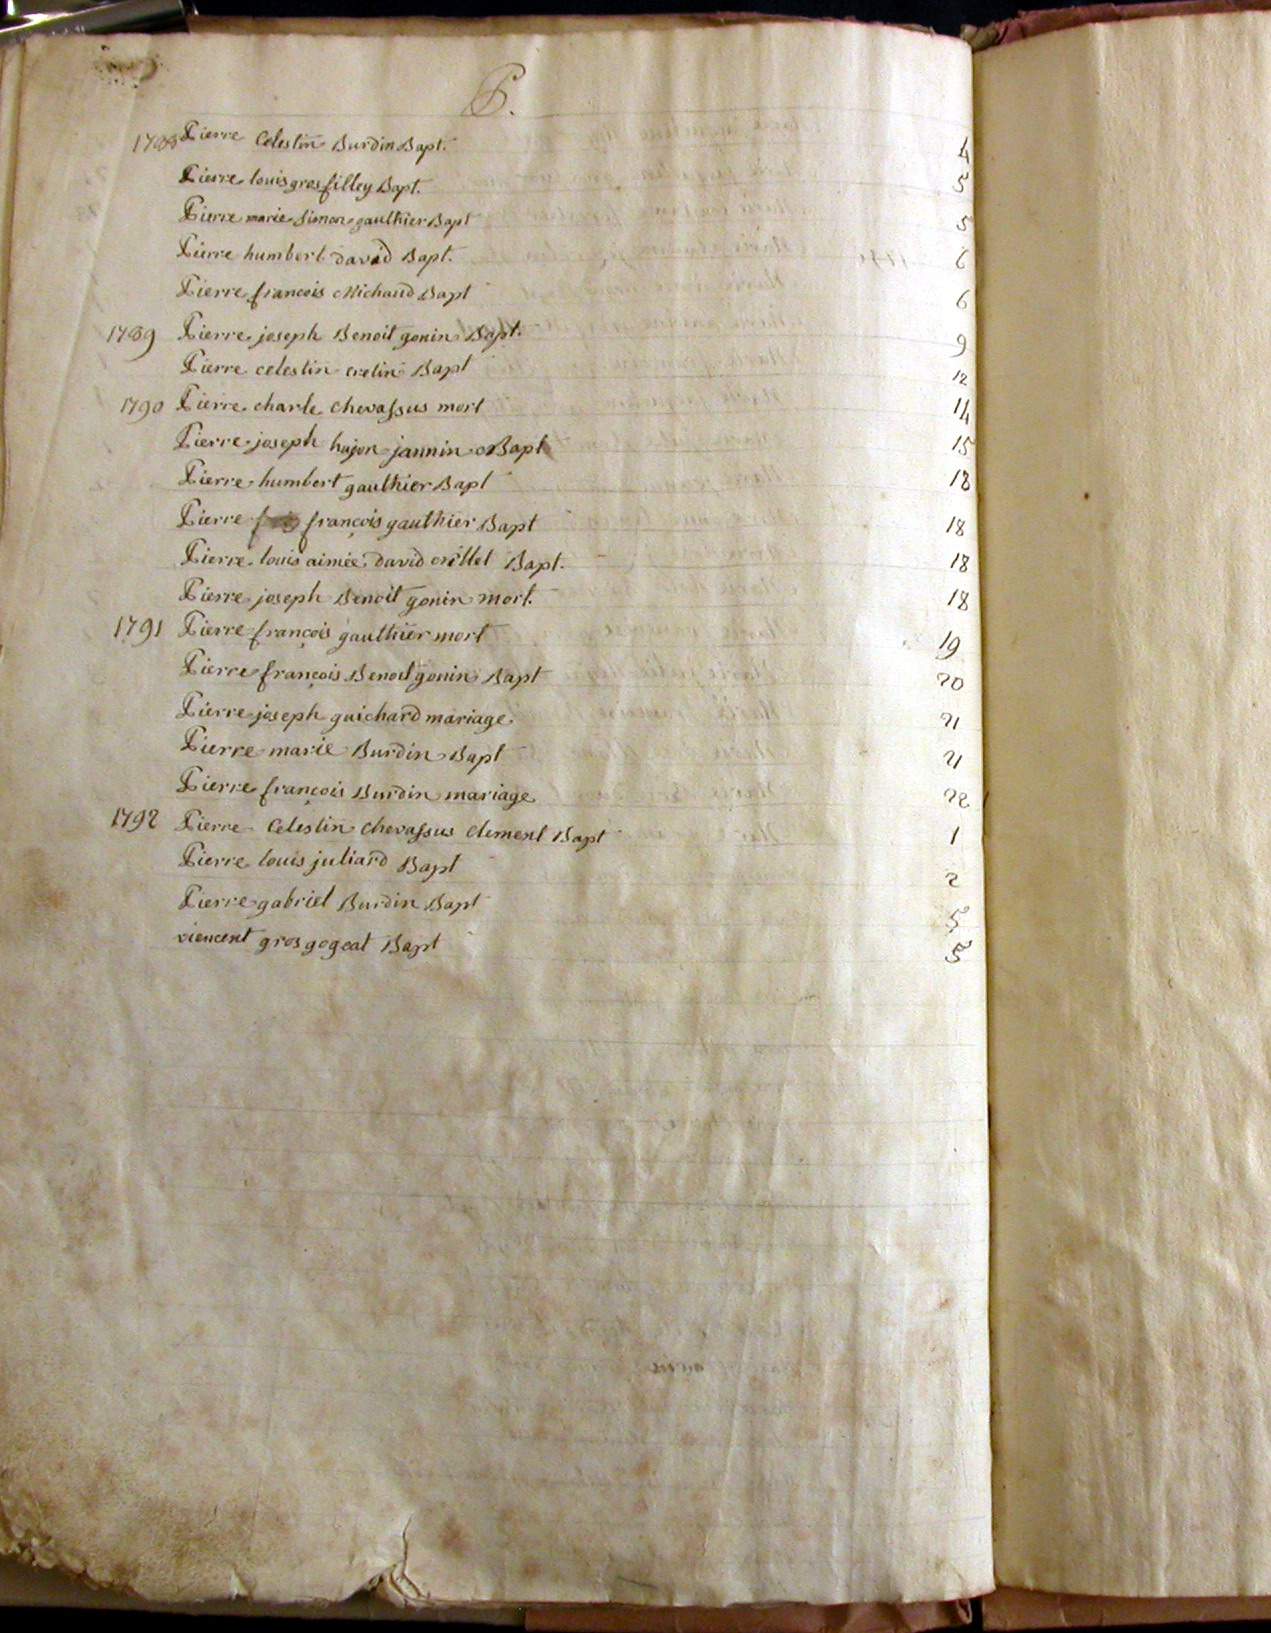 P.
1788 Pierre Celestin Burdin Bapt. 4
Pierre louis gros filley Bapt. 5
Pierre marie Simon gaulthier Bapt 5
Pierre humbert david Bapt. 6
Pierre françois Michaud Bapt 6
1789 Pierre joseph Benoit gonin Bapt. 9
Pierre celestin cretin Bapt 12
1790 Pierre charle chevassus mort 14
Pierre joseph hajon jannin Bapt 15
Pierre humbert gaulthier Bapt 18
Pierre françois gaulthier Bapt 18
Pierre louis aimée david crillet Bapt. 18
Pierre joseph Benoit gonin mort. 18
1791 Pierre françois gaulthier mort 19
Pierre françois Benoit gonin Bapt 20
Pierre joseph guichard mariage. 21
Pierre marie Burdin Bapt 21
Pierre françois Burdin mariage 22
1792 Pierre Celestin chevassus clement Bapt 1
Pierre louis juliard Bapt 2
Pierre gabriel Burdin Bapt 5
viencent gros gogeat Bapt 5